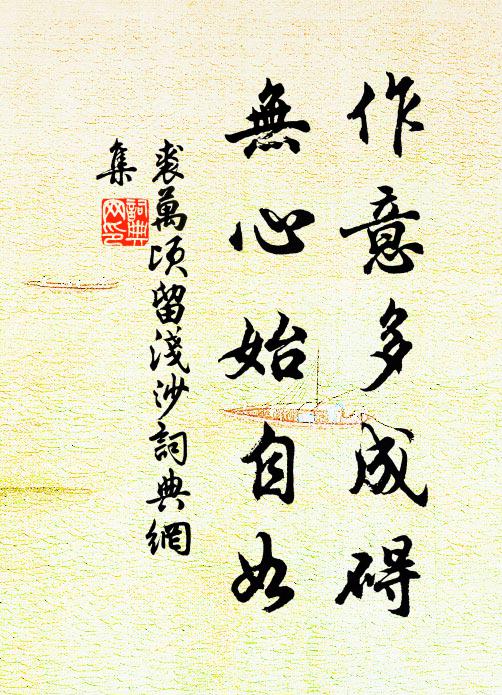 作意多成碍
無心始自如
裘萬頃留淺沙詞典網
集
詞典
网印